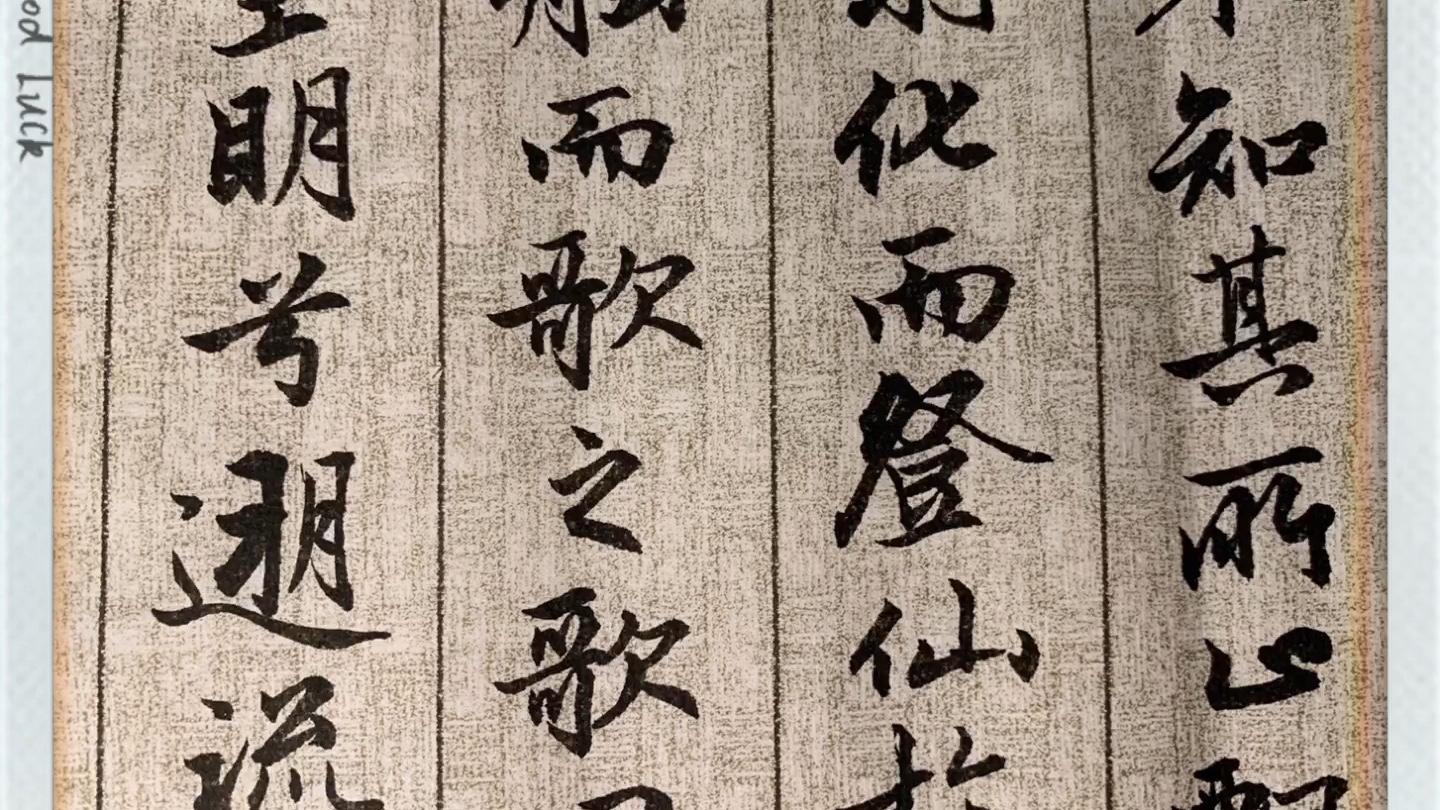 知其所止
化而登仙於
舷而歌之歌
空明兮遡流
ood Luck